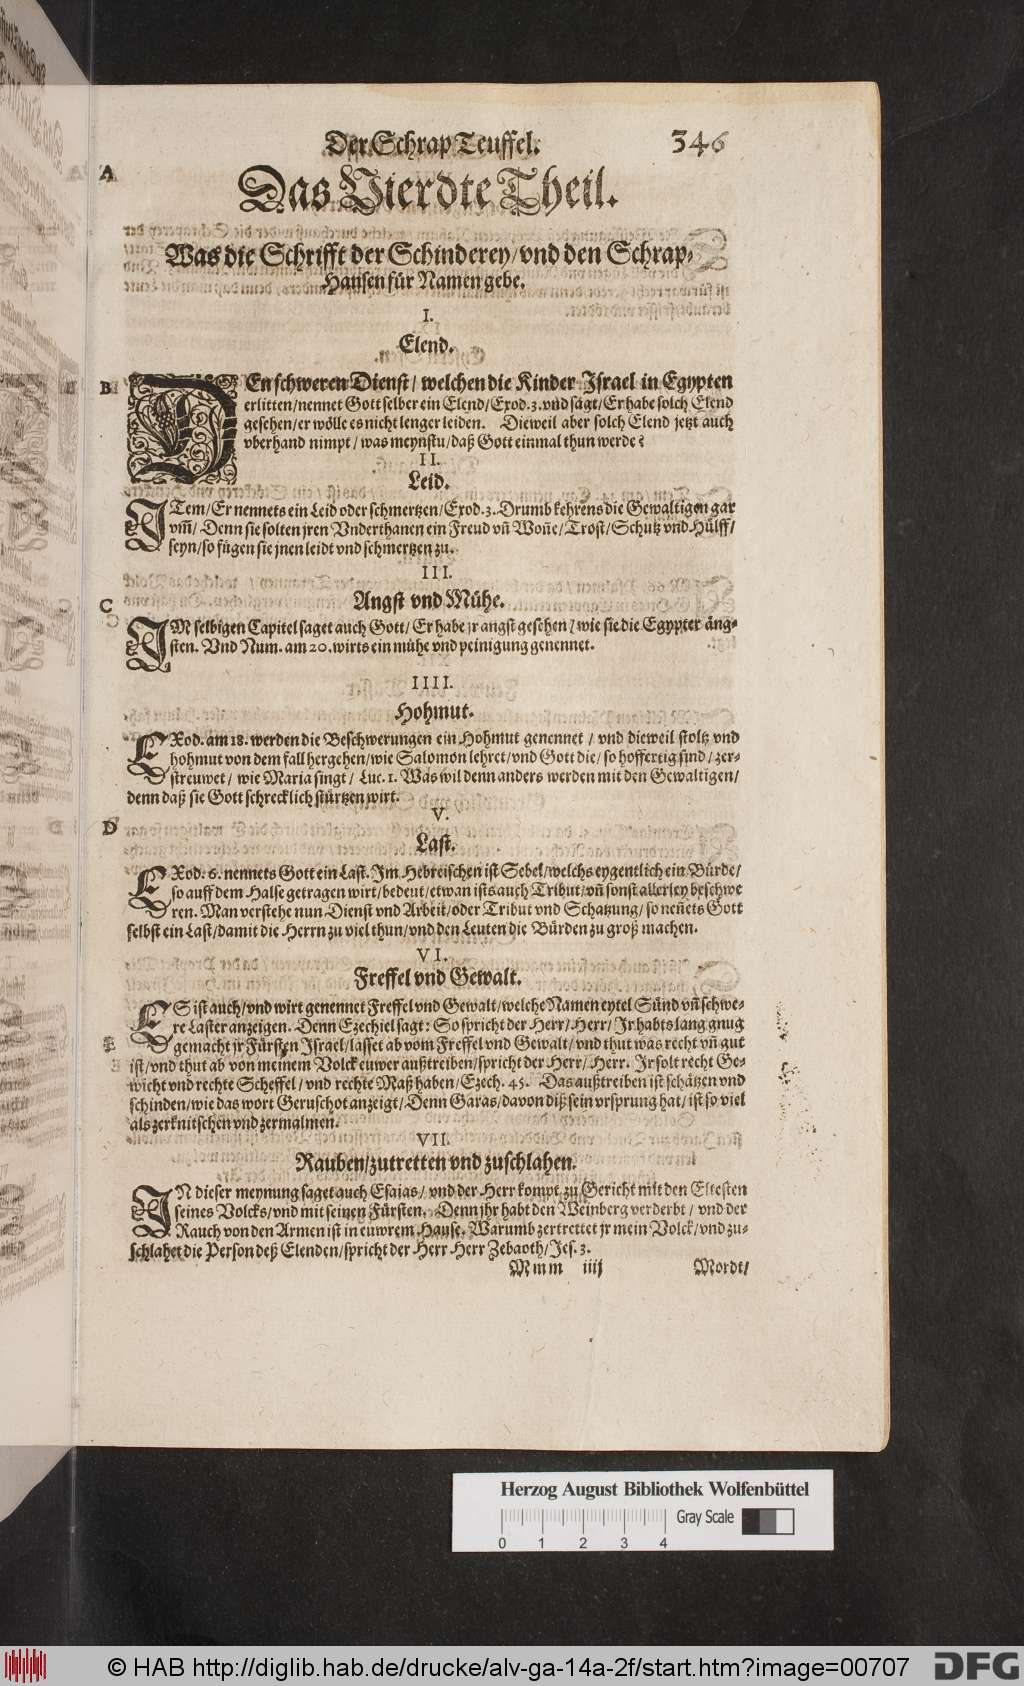 Der Schrap Teuffel. 346
A
Das Vierdte Theil.
Was die Schrifft der Schinderey/vnd den Schrap-
Hansen für Namen gebe.
I.
Elend.
B
DEn schweren Dienst/ welchen die Kinder Jsrael in Egypten
erlitten/nennet Gott selber ein Elend/Exod. 3. vnd sagt/Er habe solch Elend
gesehen/er wölle es nicht lenger leiden. Dieweil aber solch Elend jetzt auch
vberhand nimpt/ was meynstu/daß Gott einmal thun werde?
II.
Leid.
JTem/Er nennets ein Leid oder schmertzen/Exod. 3. Drumb kehrens die Gewaltigen gar
vm̃/ Denn sie solten jren Vnderthanen ein Freud vñ Woñe/Trost/Schutz vnd Hülff/
seyn/so fügen sie jnen leidt vnd schmertzen zu.
III.
C
Angst vnd Mühe.
JM selbigen Capitel saget auch Gott/ Er habe jr angst gesehen/ wie sie die Egypter äng-
sten. Vnd Num. am 20. wirts ein mühe vnd peinigung genennet.
IIII.
Hohmut.
EXod. am 18. werden die Beschwerungen ein Hohmut genennet / vnd dieweil stoltz vnd
hohmut von dem fall hergehen/wie Salomon lehret/vnd Gott die/ so hoffertig sind / zer-
streuwet/ wie Maria singt/ Luc. 1. Was wil denn anders werden mit den Gewaltigen/
denn daß sie Gott schrecklich stürtzen wirt.
V.
D
Last.
EXod. 6. nennets Gott ein Last. Jm Hebreischen ist Sebel/welchs eygentlich ein Bürde/
so auff dem Halse getragen wirt/bedeut/etwan ists auch Tribut/vñ sonst allerley beschwe
ren. Man verstehe nun Dienst vnd Arbeit/oder Tribut vnd Schatzung/ so neñets Gott
selbst ein Last/damit die Herrn zu viel thun/vnd den Leuten die Bürden zu groß machen.
VI.
Freffel vnd Gewalt.
ES ist auch/vnd wirt genennet Freffel vnd Gewalt/welche Namen eytel Sünd vñ schwe-
re Laster anzeigen. Denn Ezechiel sagt: So spricht der Herr/Herr/ Jr habts lang gnug
E
gemacht jr Fürsten Jsrael/lasset ab vom Freffel vnd Gewalt/vnd thut was recht vñ gut
ist/vnd thut ab von meinem Volck euwer außtreiben/spricht der Herr/Herr. Jr solt recht Ge-
wicht vnd rechte Scheffel/ vnd rechte Maß haben/Ezech. 45. Das außtreiben ist schätzen vnd
schinden/wie das wort Geruschot anzeigt/Denn Garas/davon diß sein vrsprung hat/ist so viel
als zerknitschen vnd zermalmen.
VII.
Rauben/zutretten vnd zuschlahen.
JN dieser meynung saget auch Esaias/ vnd der Herr kompt zu Gericht mit den Eltesten
seines Volcks/vnd mit seinen Fürsten. Denn jhr habt den Weinberg verderbt / vnd der
Rauch von den Armen ist in euwrem Hause. Warumb zertrettet jr mein Volck/vnd zu-
schlahet die Person deß Elenden/spricht der Herr Herr Zebaoth/Jes. 3.
Mmm iiij Mordt/
Herzog August Bibliothek Wolfenbüttel
Gray Scale
0 1 2 3 4
© HAB http://diglib.hab.de/drucke/alv-ga-14a-2f/start.htm?image=00707 DFG